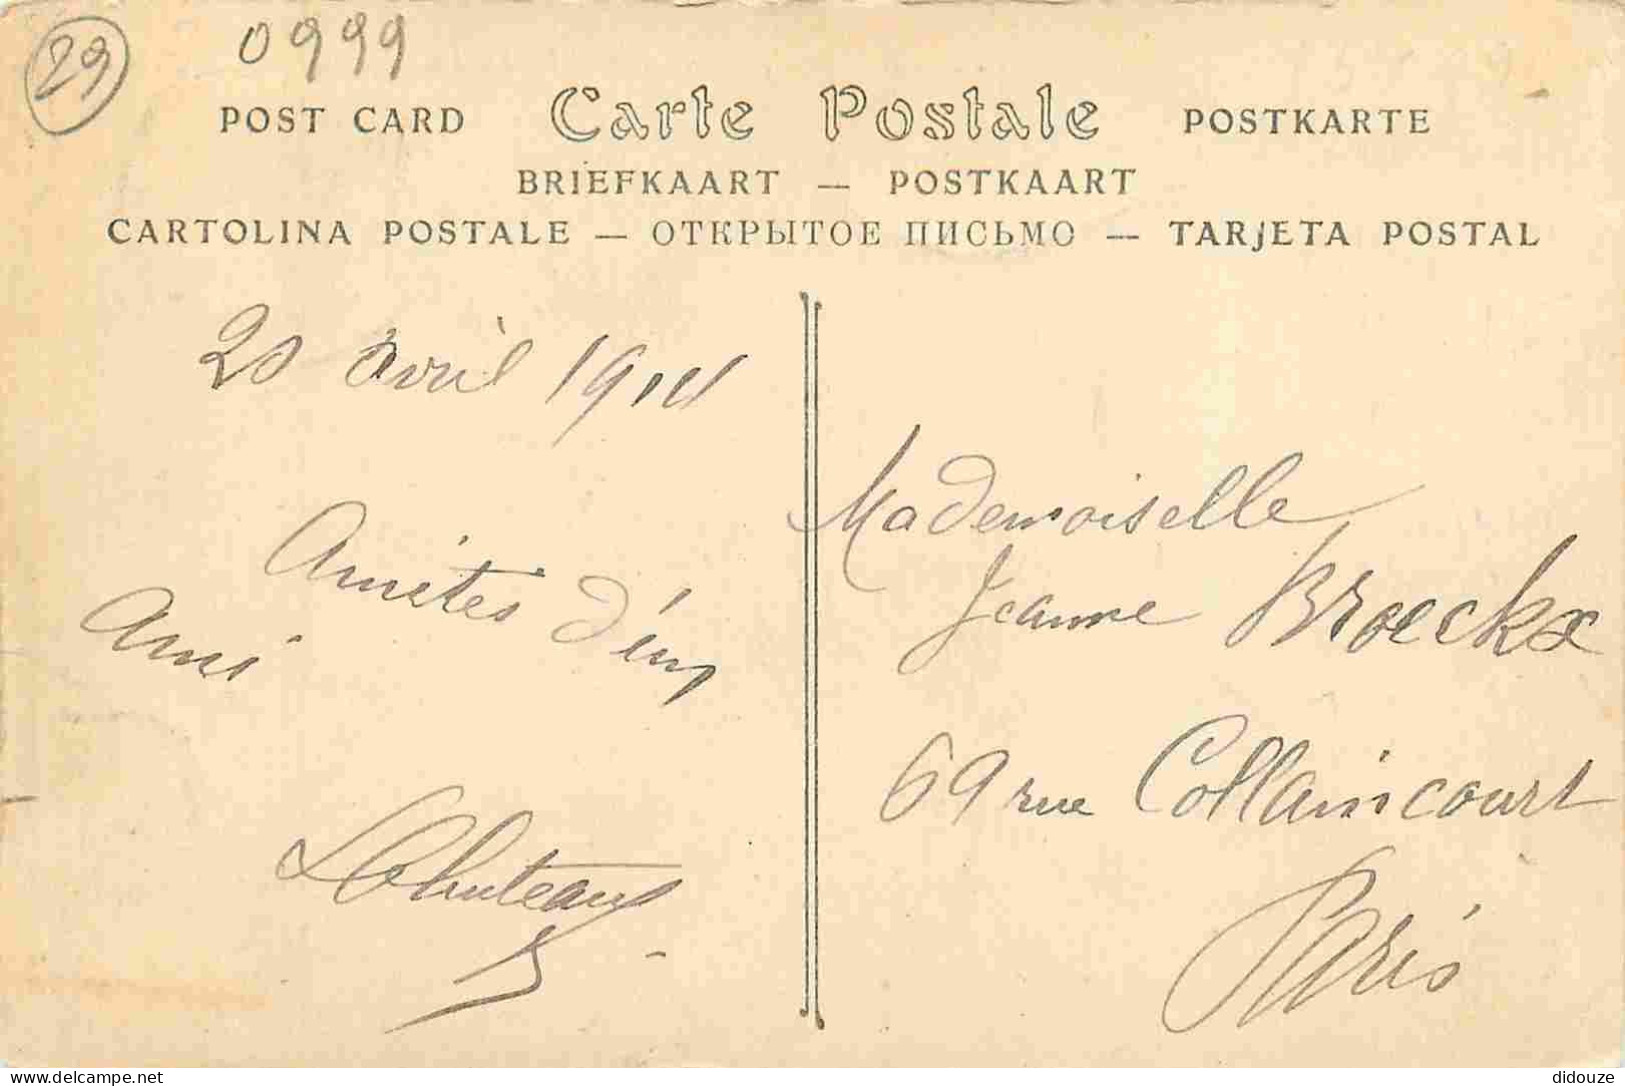 29
0999
POST CARD Carte Postale POSTKARTE
BRIEFKAART — POSTKAART
CARTOLINA POSTALE — ОТКРЫТОЕ ПИСЬМО — TARJETA POSTAL
20 avril 1914
Amités d'un
ami
Mademoiselle
Jeanne Broeckx
69 rue Collaincourt
Paris
delcampe.net
didouze